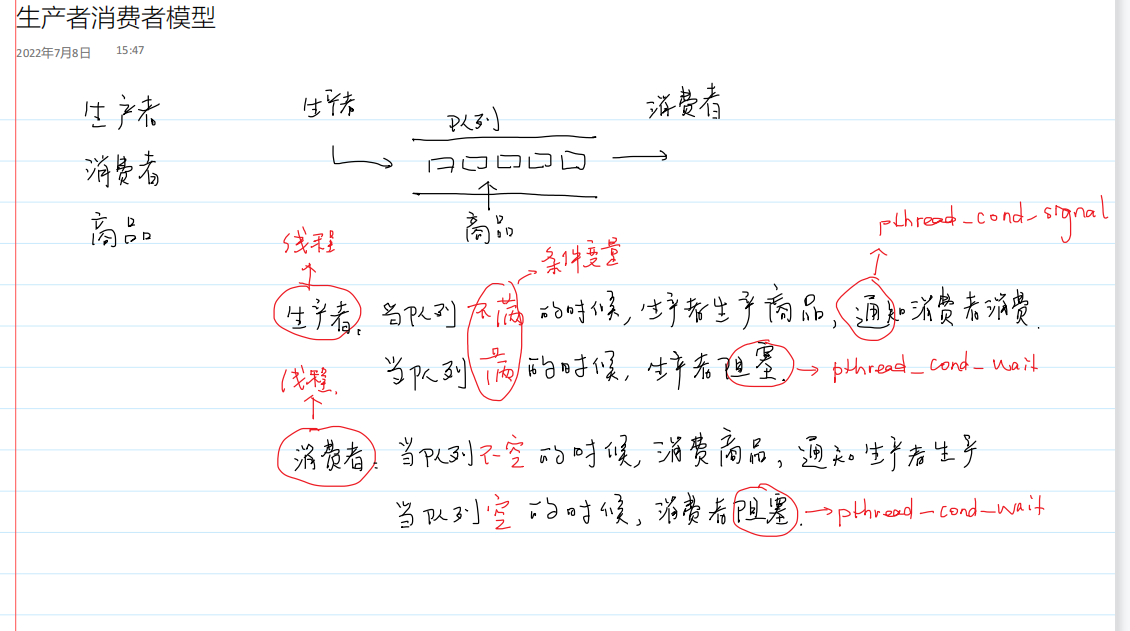 生产者消费者模型
2022年7月8日 15:47
生产者 生产者 消费者
队列
消费者
商品 商品
pthread_cond_signal
线程 条件变量
生产者: 当队列不满的时候,生产者生产商品,通知消费者消费.
当队列满的时候,生产者阻塞. → pthread_cond_wait
线程.
消费者: 当队列不空的时候,消费商品,通知生产者生产
当队列空的时候,消费者阻塞. → pthread_cond_wait